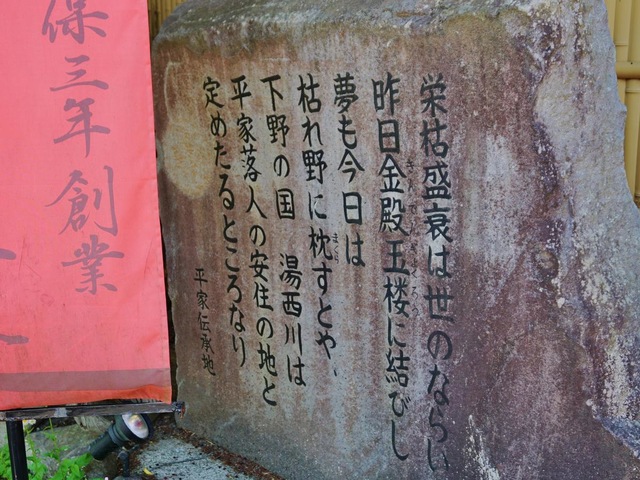 栄枯盛衰は世のならい
昨日金殿玉楼に結びし
夢も今日は
枯れ野に枕すとや、
下野の国 湯西川は
平家落人の安住の地と
定めたるところなり
平家伝承地
保三年創業